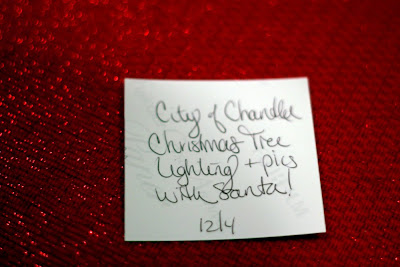 City of Chandler
Christmas Tree
Lighting + pics
with Santa!
12/4